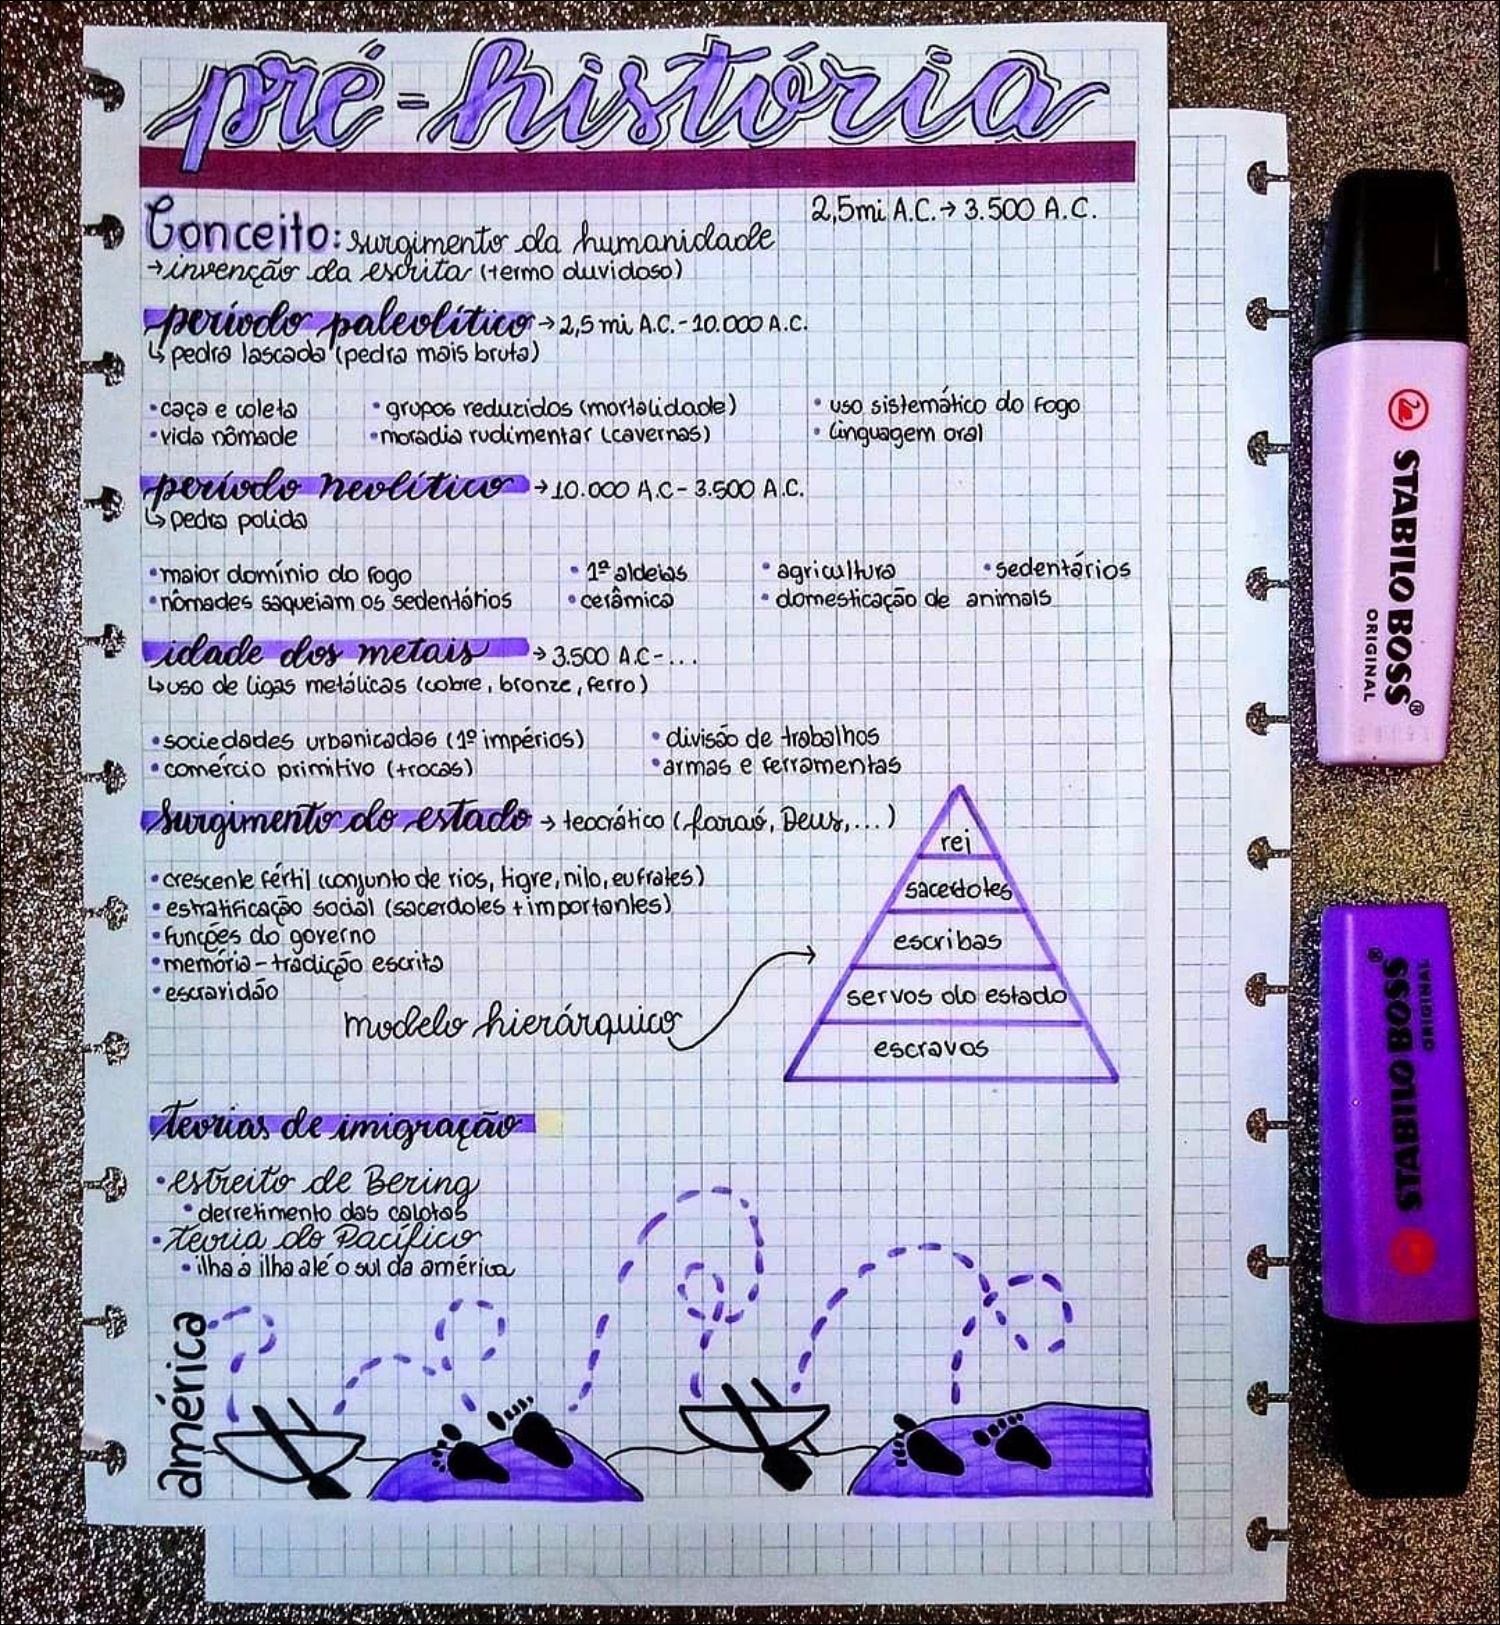 pré-história
2,5mi A.C.→ 3.500 A.C.
Conceito: surgimento da humanidade
→invenção da escrita (termo duvidoso)
período paleolítico →2,5 mi A.C.-10.000 A.C.
↳ pedra lascada (pedra mais bruta)
•caça e coleta •grupos reduzidos (mortalidade) •uso sistemático do fogo
•vida nômade •moradia rudimentar (cavernas) •linguagem oral
período neolítico →10.000 A.C- 3.500 A.C.
↳ pedra polida
•maior domínio do fogo •1ª aldeias •agricultura •sedentários
•nômades saqueiam os sedentários •cerâmica •domesticação de animais
idade dos metais →3.500 A.C-...
↳uso de ligas metálicas (cobre, bronze, ferro)
•sociedades urbanicadas (1º impérios) •divisão de trabalhos
•comércio primitivo (trocas) •armas e ferramentas
surgimento do estado → teocrático (faraó, Deus,...)
•crescente fértil (conjunto de rios, tigre, nilo, eufrates)
•estratificação social (sacerdoles + importantes)
•funções do governo
•memória-tradição escrita
•escravidão
modelo hierárquico
rei
sacerdotes
escribas
servos do estado
escravos
teorias de imigração
•estreito de Bering
•derretimento das calotas
•teoria do Pacífico
•ilha a ilha até o sul da américa
américa
STABILO BOSS®
ORIGINAL
STABILO BOSS®
ORIGINAL